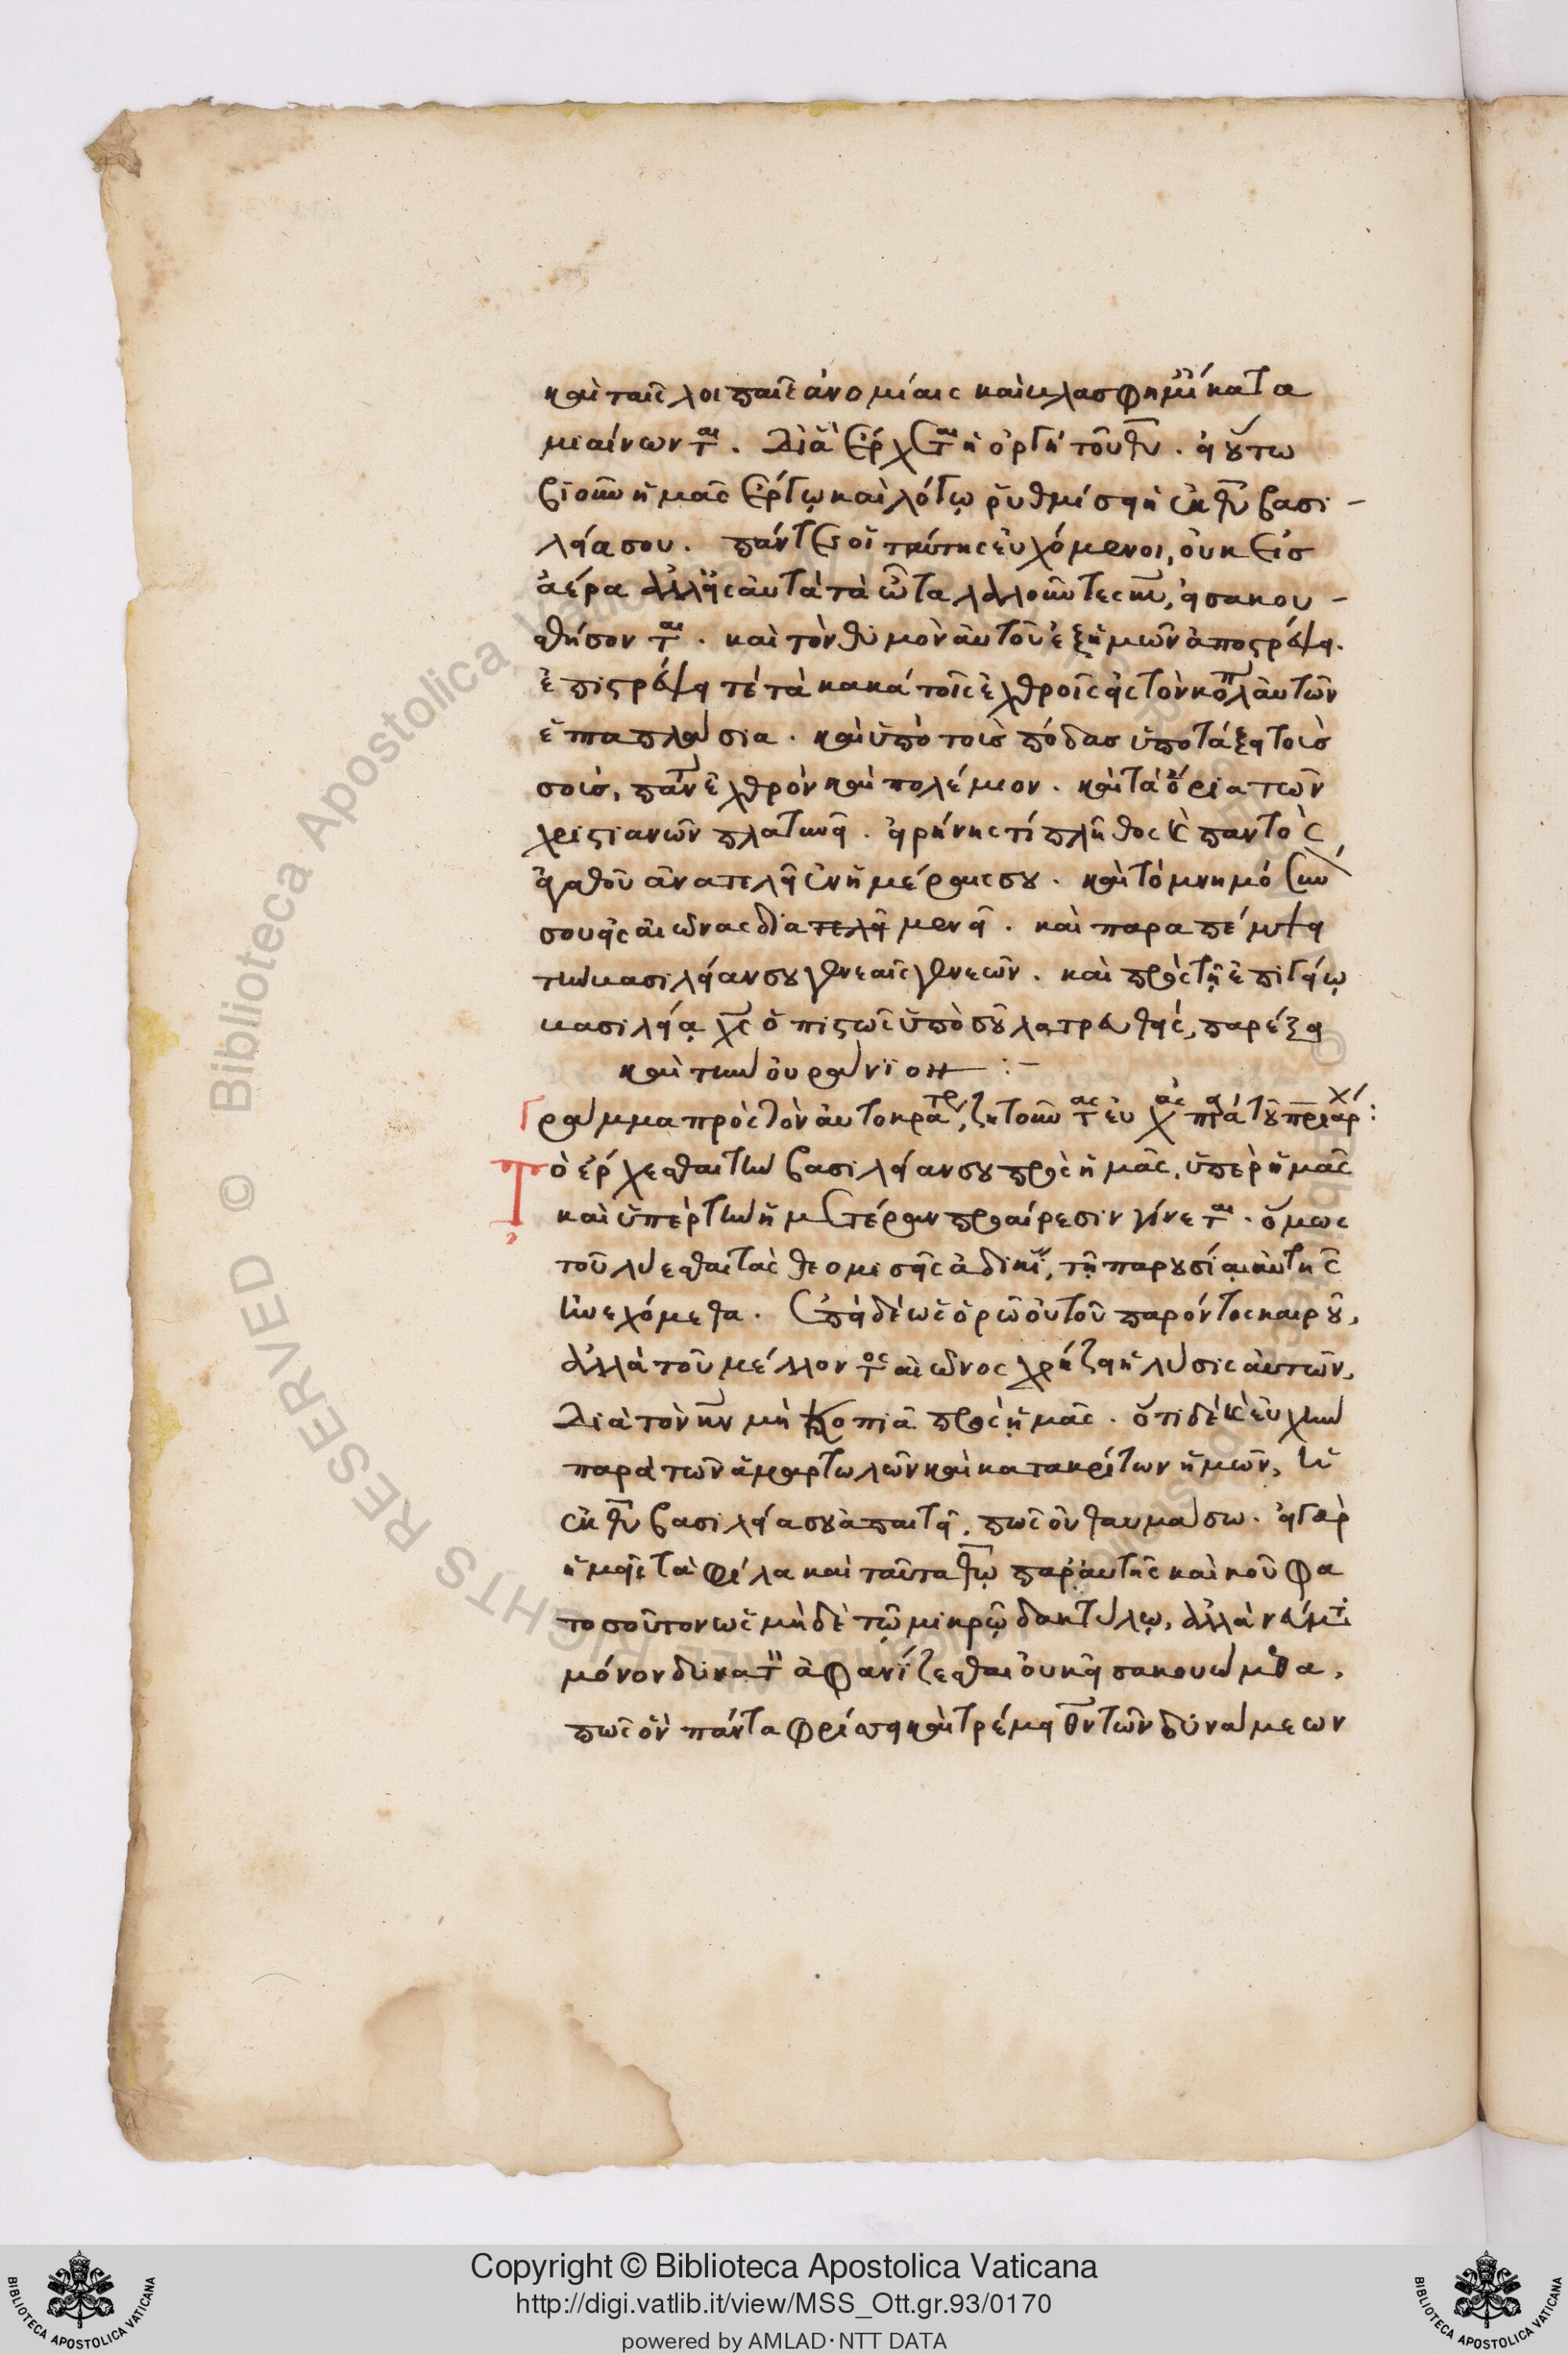 καὶ ταῖς λοιπαῖς ἀνομίαις καὶ βλασφημίαις κατα
μιαίνονται. δι' ἃ ἔρχεται ἡ ὀργὴ τοῦ θυ. εἰ οὕτω
βιοῦν ἡμᾶς ἔργω καὶ λόγω ῥυθμίσει ἡ ἐκ θυ βασι-
λεία σου. πάντες οἱ ταύτης εὐχόμενοι, οὐκ εἰς
ἀέρα ἀλλ' εἰς αὐτὰ τὰ ὦτα λαλοῦντες κυ, εἰσακου-
σθήσονται. καὶ τὸν θυμὸν αὐτοῦ ἐξ ἡμῶν ἀποστρέψει.
ἐπιστρέψει τὲ τὰ κακὰ τοῖς ἐχθροῖς εἰς τὸν κόλπον αὐτῶν
ἑπταπλάσια. καὶ ὑπὸ τοὺς πόδας ὑποτάξει τοὺς
σοὺς, πάντα ἐχθρὸν καὶ πολέμιον. καὶ τὰ ὅρια τῶν
χριστιανῶν πλατυνεῖ. εἰρήνης τί πλῆθος καὶ παντὸς
ἀγαθοῦ ἀνατελεῖ ἐν ἡμέραις σου. καὶ τὸ μνημόσυνόν
σου εἰς αἰῶνας δια τελεῖ μενεῖ. καὶ παραπέμψει
τὴν βασιλείαν σου γενεαῖς γενεῶν. καὶ πρὸς τῆ ἐπιγείω
βασιλεία χς ὁ πιστῶς ὑπὸ σοῦ λατρευθεὶς, παρέξει
καὶ τὴν οὐράνιον :-
Γράμμα πρὸς τὸν αὐτοκράτορα, ζητοῦντα εὐχὰς παρὰ τοῦ πριάρχου:
Τὸ ἔρχεσθαι τὴν βασιλείαν σου πρὸς ἡμᾶς, ὑπὲρ ἡμᾶς
καὶ ὑπὲρ τὴν ἡμετέραν προαίρεσιν γίνεται. ὅμως
τοῦ λύεσθαι τὰς θεομισεῖς ἀδικίας, τῆ παρουσία αὐτῆς
ηὐχόμεθα. ἐπεὶ δὲ ὡς ὁρῶ οὐ τοῦ παρόντος καιροῦ,
ἀλλὰ τοῦ μέλλοντος αἰῶνος χρήζει ἡ λύσις αὐτῶν,
διὰ τὸν κν μὴ κοπιᾶ πρὸς ἡμᾶς. ὅτι δὲ καὶ εὐχὴν
παρὰ τῶν ἁμαρτωλῶν καὶ κατακρίτων ἡμῶν, ἡ
ἐκ θυ βασιλεία σου ἀπαιτεῖ, πῶς οὐ θαυμάσω. εἰ γὰρ
ἡμεῖς τὰ φίλα καὶ ταῦτα θω παρ' αὐτῆς καὶ κοῦφα
τοσοῦτον ὡς μὴ δὲ τῶ μικρῶ δακτύλω, ἀλλὰ νεύματι
μόνον δύνασθαι ἀφανίζεσθαι οὐκ εἰσακουόμεθα,
πῶς ὃν πάντα φρίσσει καὶ τρέμει θν τῶν δυνάμεων
Copyright © Biblioteca Apostolica Vaticana
http://digi.vatlib.it/view/MSS_Ott.gr.93/0170
powered by AMLAD·NTT DATA